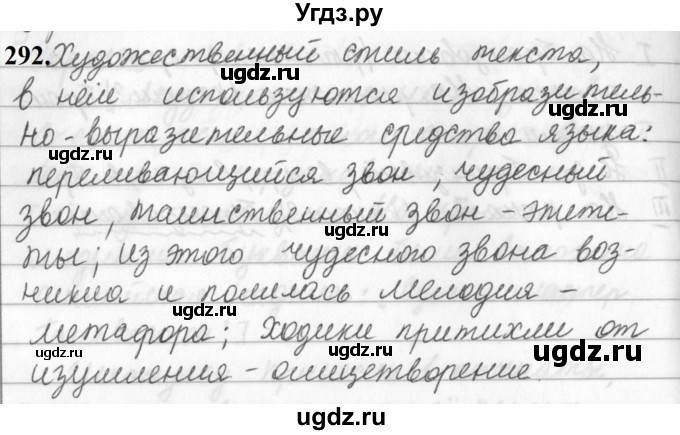 Угдз.ру
292. Художественный стиль текста,
в нём используются изобразитель-
но-выразительные средства языка:
переливающийся звон, чудесный
звон, таинственный звон - эпите-
ты; из этого чудесного звона воз-
никла и полилась мелодия -
метафора; Ходики притихли от
изумления - олицетворение.
ugdz.ru
ugdz.ru
ugdz.ru
ugdz.ru
ugdz.ru
ugdz.ru
ugdz.ru
ugdz.ru
ugdz.ru
ugdz.ru
ugdz.ru